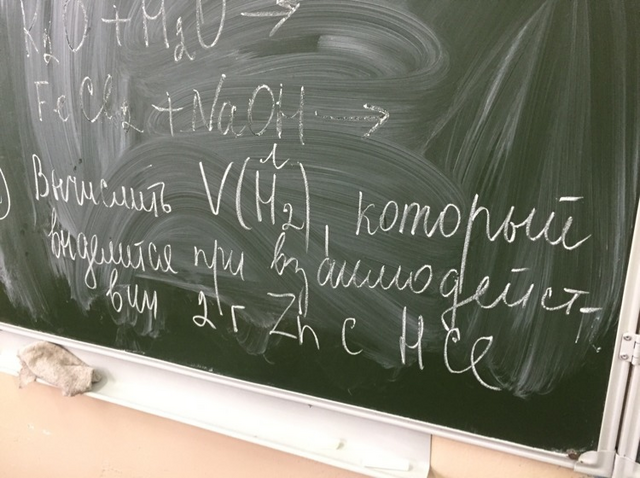 K₂O + H₂O →
FeCl₂ + NaOH →
) Вычислить V(H₂), который
л
выделится при взаимодейст-
вии 2 г Zn с HCl